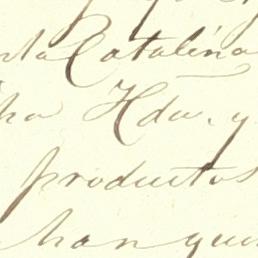 nta Catalina
ha Hda. y
productos
han que